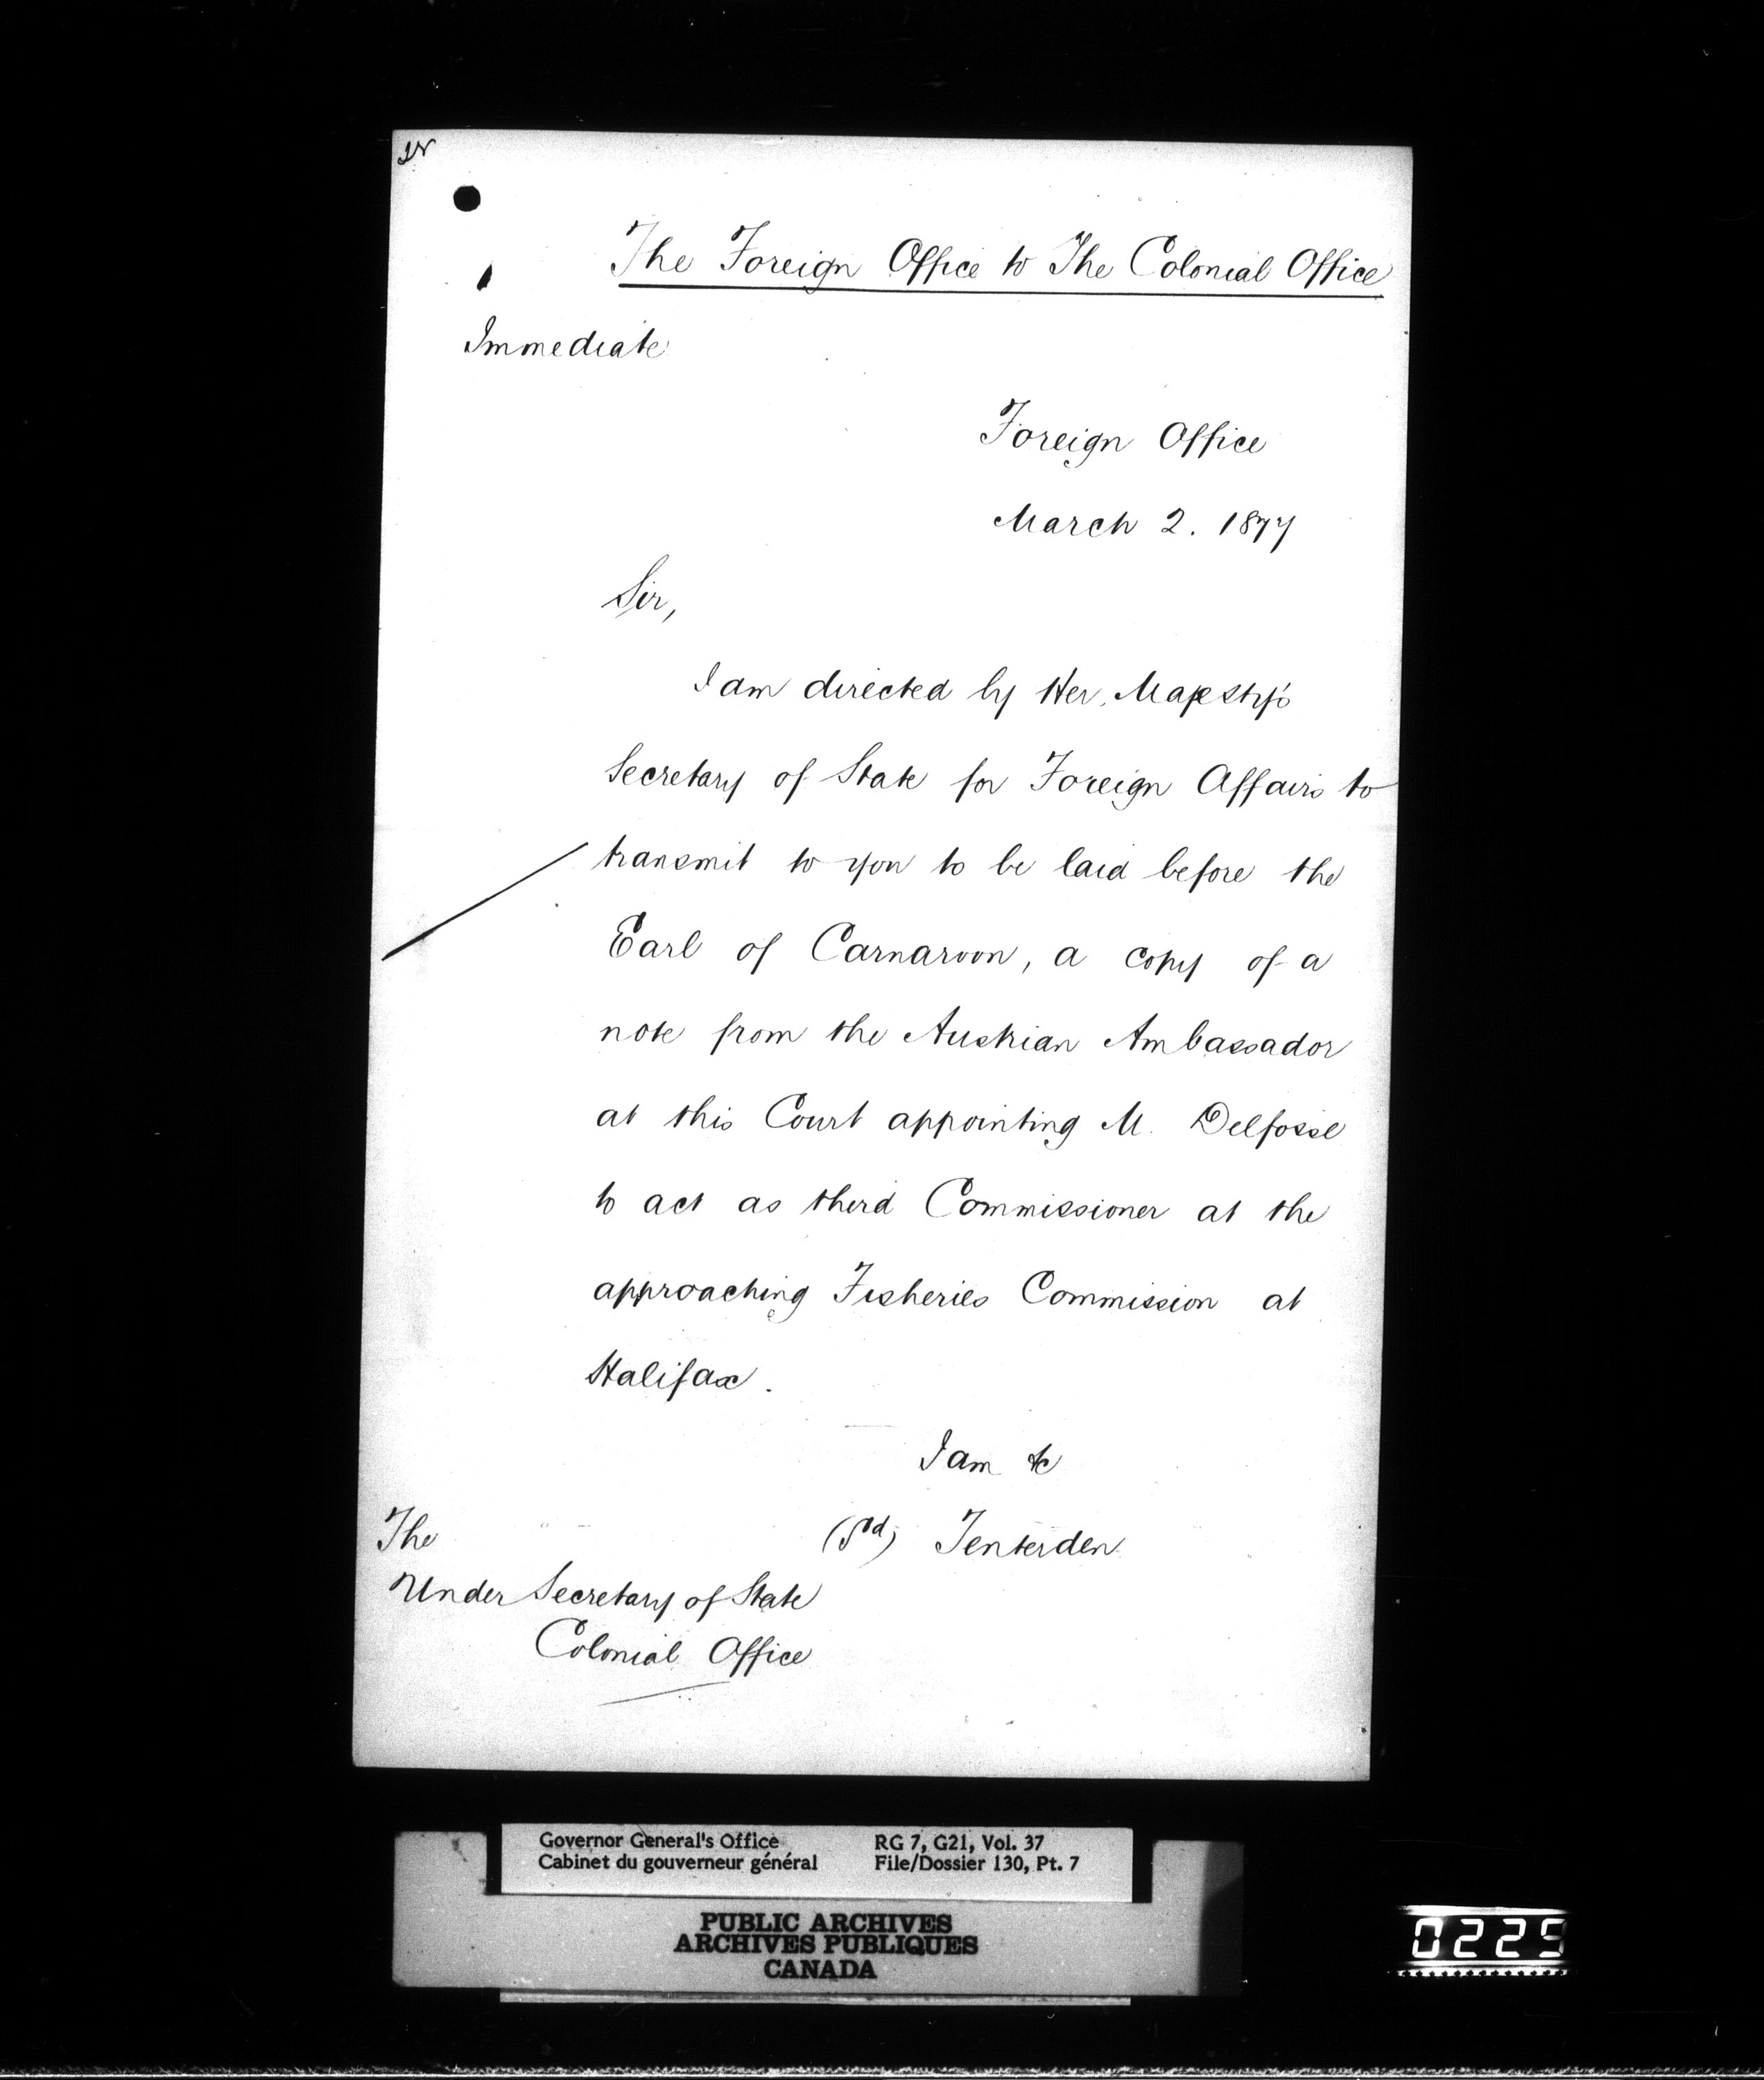 The Foreign Office to The Colonial Office
Immediate
Foreign Office
March 2. 1877
Sir,
I am directed by Her Majesty's
Secretary of State for Foreign Affairs to
transmit to you to be laid before the
Earl of Carnarvon, a copy of a
note from the Austrian Ambassador
at this Court appointing M. Delfosse
to act as third Commissioner at the
approaching Fisheries Commission at
Halifax.
I am &c
(Sd) Tenterden
The
Under Secretary of State
Colonial Office
Governor General's Office RG 7, G21, Vol. 37
Cabinet du gouverneur général File/Dossier 130, Pt. 7
PUBLIC ARCHIVES
ARCHIVES PUBLIQUES
CANADA
0229